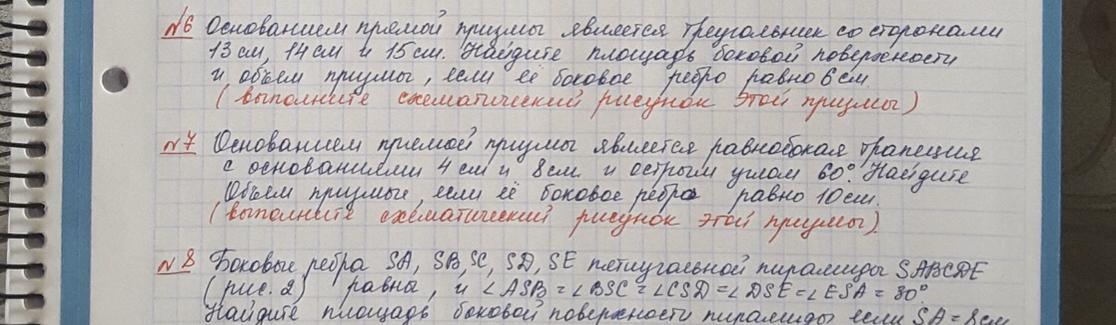 №6 Основанием прямой призмы является треугольник со сторонами
13 см, 14 см и 15 см. Найдите площадь боковой поверхности
и объём призмы, если её боковое ребро равно 6 см.
(выполните схематический рисунок этой призмы)
№7 Основанием прямой призмы является равнобокая трапеция
с основаниями 4 см и 8 см. и острым углом 60°. Найдите
Объём призмы, если её боковое ребро равно 10 см.
(выполните схематический рисунок этой призмы)
№8 Боковые ребра SA, SB, SC, SD, SE пятиугольной пирамиды SABCDE
(рис. 2) равна, и ∠ASB = ∠BSC = ∠CSD = ∠DSE = ∠ESA = 30°
Найдите площадь боковой поверхности пирамиды если SA = 8 см